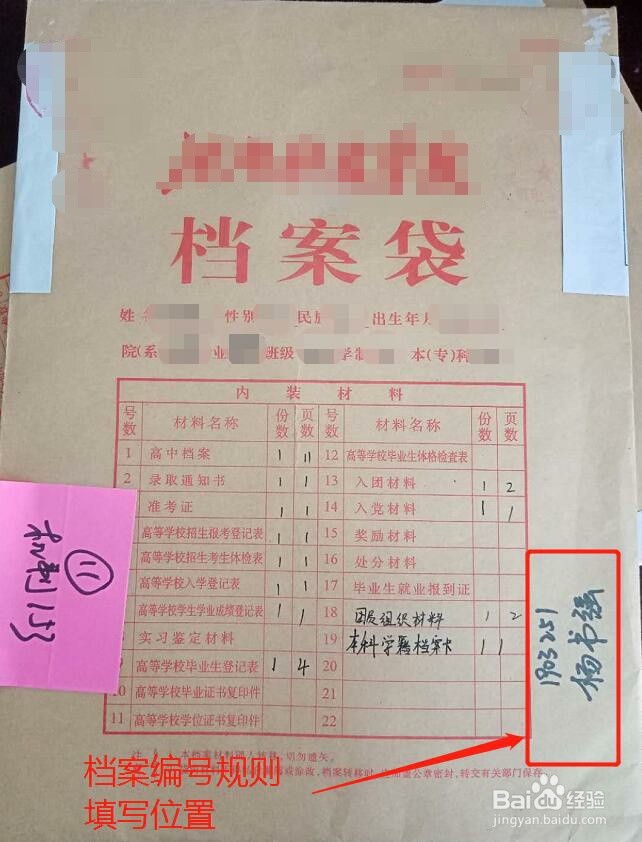 档案袋
姓 性别 民族 出生年月
院(系 业 班级 学制 本(专)科
内装材料
号数 材料名称 份数 页数 号数 材料名称 份数 页数
1 高中档案 1 11 12 高等学校毕业生体格检查表
2 录取通知书 1 1 13 入团材料 1 2
准考证 1 1 14 入党材料 1 1
高等学校招生报考登记表 1 1 15 奖励材料
高等学校招生考生体检表 1 1 16 处分材料
高等学校入学登记表 1 1 17 毕业生就业报到证
高等学校学生学业成绩登记表 1 1 18 团员组织材料 1 2
8 实习鉴定材料 19 本科学籍档案卡 1 1
9 高等学校毕业生登记表 1 4 20
10 高等学校毕业证书复印件 21
11 高等学校学位证书复印件 22
11
1903251
杨书强
切勿遗失。
或涂改,档案转移时,应加盖公章密封,转交有关部门保存
档案编号规则
填写位置
Baidu经验
jingyan.baidu.com